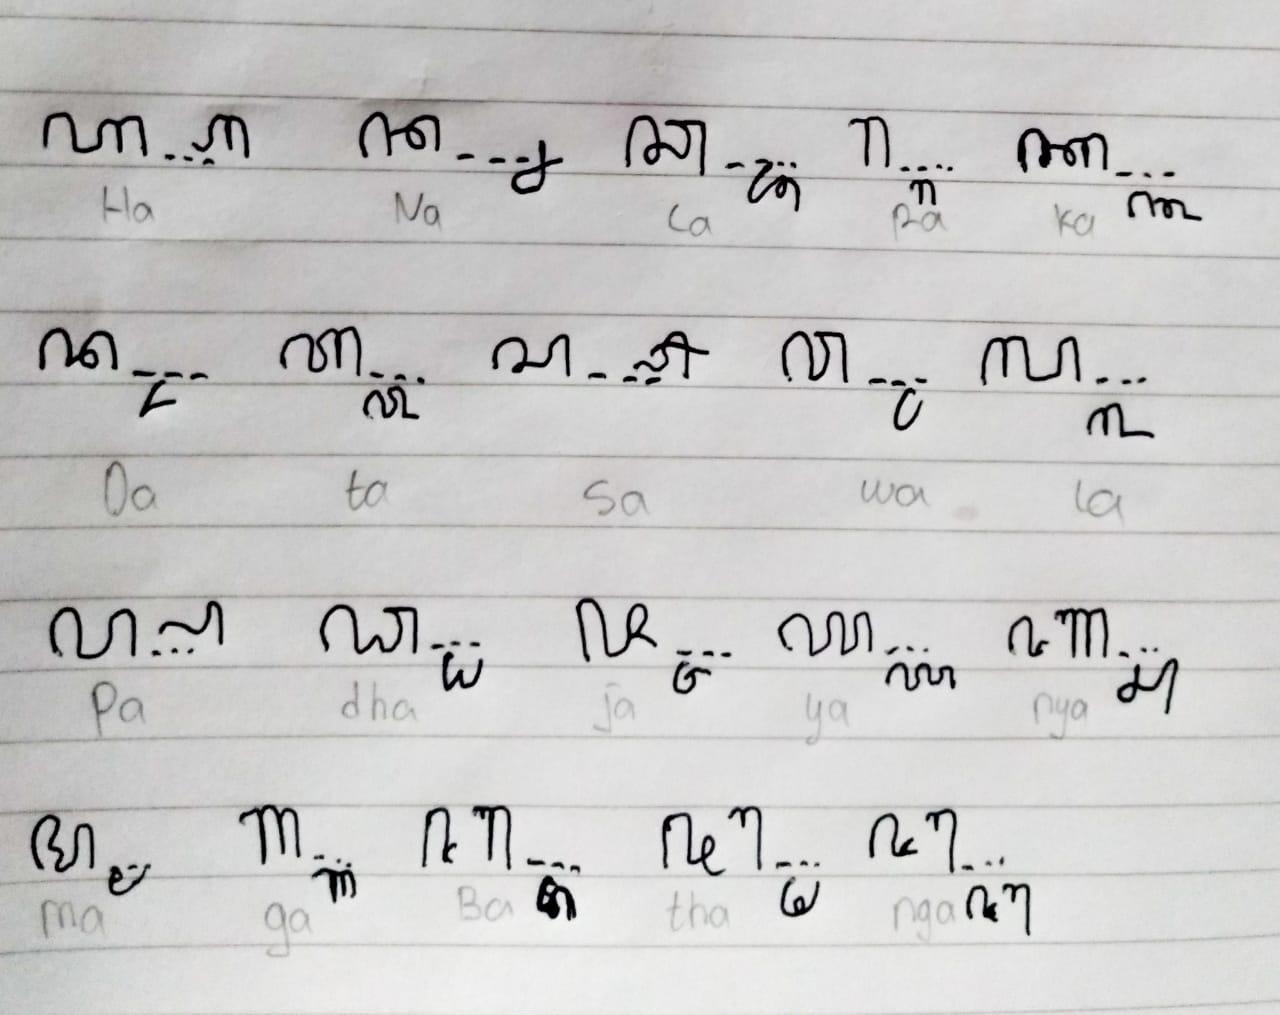 ꦲ...꧀ꦲ ꦤ...꧀ꦤ ꦕ...꧀ꦕ ꦫ...꧀ꦫ ꦏ...꧀ꦏ
Ha Na Ca Ra Ka
ꦢ...꧀ꦢ ꦠ...꧀ꦠ ꦱ...꧀ꦱ ꦮ...꧀ꦮ ꦭ...꧀ꦭ
Da ta Sa wa la
ꦥ...꧀ꦥ ꦝ...꧀ꦝ ꦗ...꧀ꦗ ꦪ...꧀ꦪ ꦚ...꧀ꦚ
Pa dha ja ya nya
ꦩ...꧀ꦩ ꦒ...꧀ꦒ ꦧ...꧀ꦧ ꦛ...꧀ꦛ ꦔ...꧀ꦔ
ma ga Ba tha nga